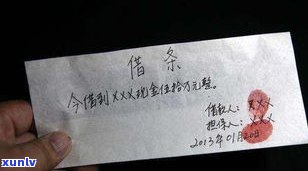 借条
今借到XXX现金伍拾万元整。
借款人:XXX
担保人:XXX
2013年01月20日
xunlv